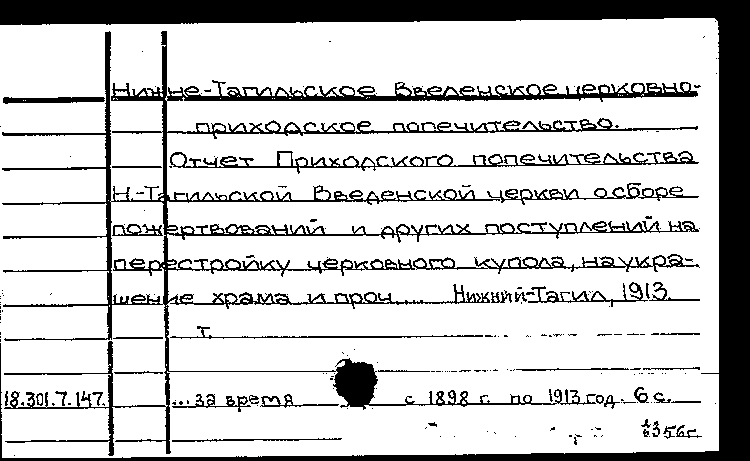 Нижне-Тагильское Введенское церковно-
приходское попечительство.
Отчет Приходского попечительства
Н.-Тагильской Введенской церкви о сборе
пожертвований и других поступлений на
перестройку церковного купола, на укра-
шение храма и проч... Нижний-Тагил, 1913.
т.
18.301.7.147. ...за время с 1898 г. по 1913 год. 6 с.